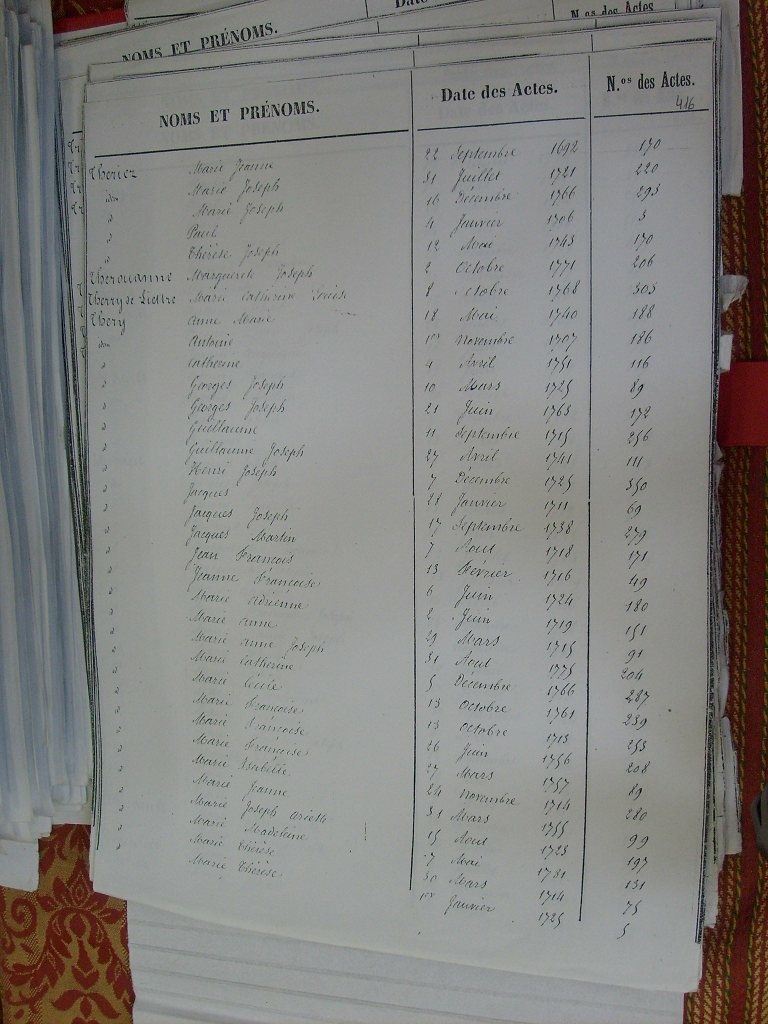 NOMS ET PRÉNOMS.
N.os des Actes
NOMS ET PRÉNOMS. Date des Actes. N.os des Actes.
416
Theriez Marie Jeanne 22 Septembre 1692 170
idem Marie Joseph 31 Juillet 1721 220
d Marie Joseph 16 Décembre 1766 293
d Paul 4 Janvier 1706 3
d Thérèse Joseph 12 Mai 1743 170
Therouanne Marguerite Joseph 2 Octobre 1771 206
Therry de Liettre Marie Catherine Louise 8 Octobre 1768 303
Thery Anne Marie 18 Mai 1740 188
idem Antoine 1er Novembre 1707 186
d Catherine 4 Avril 1751 116
d Georges Joseph 10 Mars 1725 89
d Georges Joseph 21 Juin 1763 172
d Guillaume 11 Septembre 1715 256
d Guillaume Joseph 27 Avril 1741 111
d Henri Joseph 7 Décembre 1725 350
d Jacques 28 Janvier 1711 69
d Jacques Joseph 17 Septembre 1738 279
d Jacques Martin 7 Aout 1718 171
d Jean François 13 Février 1716 49
d Jeanne Françoise 6 Juin 1724 180
d Marie Adrienne 2 Juin 1719 151
d Marie Anne 29 Mars 1715 91
d Marie Anne Joseph 31 Aout 1775 204
d Marie Catherine 5 Décembre 1766 287
d Marie Cécile 13 Octobre 1761 239
d Marie Françoise 13 Octobre 1713 253
d Marie Françoise 26 Juin 1756 208
d Marie Françoise 27 Mars 1757 89
d Marie Isabelle 24 Novembre 1714 280
d Marie Jeanne 31 Mars 1755 99
d Marie Joseph 15 Aout 1723 197
d Marie Madeleine 7 Mai 1731 131
d Marie Thérèse 30 Mars 1714 75
d Marie Thérèse 1er Janvier 1725 5